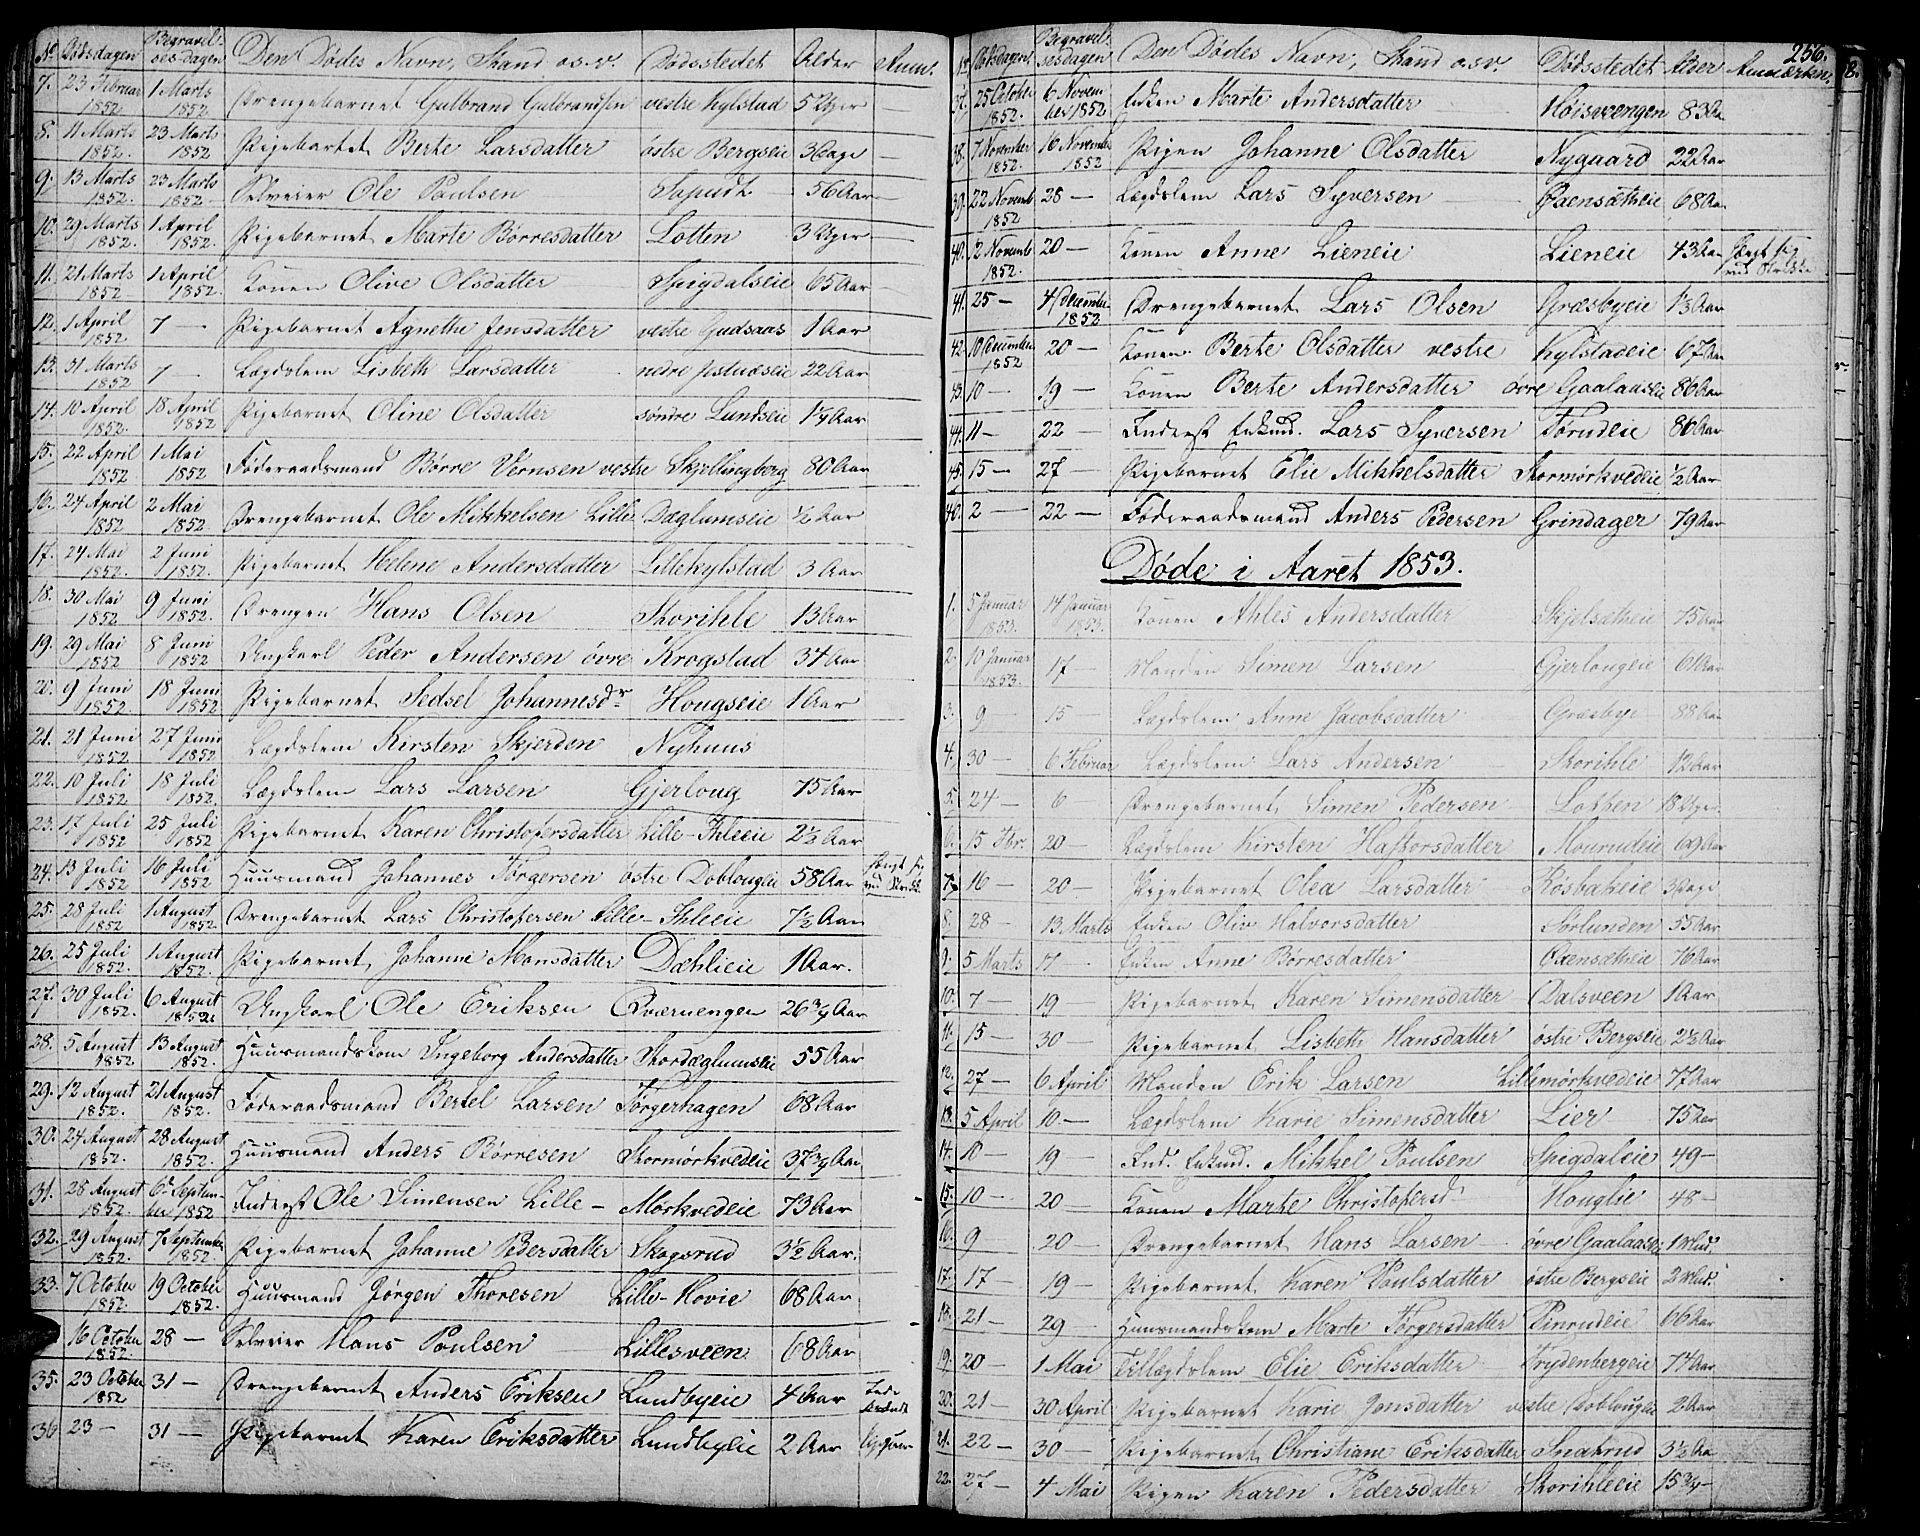 No Dødsdagen Begravelsesdagen Den Dødes Navn, Stand o.s.v. Dødsstedet Alder Anm.
7. 23 Februar 1852 1 Marts 1852 Drengebarnet Gulbrand Gulbrandsen vestre Kylstad 5 Uger
8. 11 Marts 1852. 23 Marts 1852 Pigebarnet Berte Larsdatter østre Bergseie 3 Dage —
9. 13 Marts 1852. 23 Marts 1852. Selveier Ole Poulsen 56 Aar —
10. 29 Marts 1852. 1 April 1852. Pigebarnet Marte Børresdatter Lotten 3 Uger —
11. 21 Marts 1852 1 April 1852. Konen Olive Olsdatter Spigdalseie 65 Aar —
12. 1 April 1852. 7 — Pigebarnet Agnethe Jensdatter vestre Gudsaas 1 Aar
13. 31 Marts 1852 7 — Lægdslem Lisbeth Larsdatter nedre 22 Aar
14. 10 April 1852. 18 April 1852 Pigebarnet Oline Olsdatter søndre Lundseie 1¼ Aar
15. 22 April 1852 1 Mai 1852 Føderaadsmand Børre Vernsen vestre Skjellingberg 80 Aar
16. 24 April 1852 2 Mai 1852. Drengebarnet Ole Mikkelsen Lille Dæglumseie ½ Aar
17. 24 Mai 1852. 2 Juni 1852. Pigebarnet Helene Andersdatter Lillekylstad 3 Aar
18. 30 Mai 1852. 9 Juni 1852. Drengen Hans Olsen Skorihle 13 Aar
19. 29 Mai 1852 8 Juni 1852 Ungkarl Peder Andersen øvre Krogstad 34 Aar
20. 9 Juni 1852. 18 Juni 1852 Pigebarnet Sedsel Johannesdr Hougseie 1 Aar
21. 21 Juni 1852 27 Juni 1852 Lægdslem Kirsten Skjerden Nyhuus
22. 10 Juli 1852 18 Juli 1852. Lægdslem Lars Larsen Gjerloug 75 Aar
23. 17 Juli 1852 25 Juli 1852 Pigebarnet Karen Christofersdatter Lille-Ihleeie 2½ Aar
24. 13 Juli 1852 16 Juli 1852 Huusmand Johannes Tørgersen østre Doblougeie 58 Aar
25. 28 Juli 1852 1 August 1852. Drengebarnet Lars Christofersen Lille-Ihleeie 7½ Aar
26. 25 Juli 1852. 1 August 1852. Pigebarnet Johanne Monsdatter Dæhlieie 1 Aar.
27. 30 Juli 1852. 6 August 1852 Ungkarl Ole Eriksen Qværnengen 26¾ Aar
28. 5 August 1852. 13 August 1852. Huusmandskone Ingeborg Andersdatter Stordæglumseie 55 Aar
29. 12 August 1852. 21 August 1852. Føderaadsmand Bertel Larsen Tørgerhagen 68 Aar
30. 24 August 1852. 28 August 1852. Huusmand Anders Børresen Stormørkvedeie 37¾ Aar
31. 28 August 1852. 6 September 1852 Inderst Ole Simensen Lille- Mørkvedeie 73 Aar
32. 29 August 1852. 7 September 1852. Pigebarnet Johanne Pedersdatter Skogsrud 3½ Aar.
33. 7 October 1852. 19 October 1852. Huusmand Jørgen Thoresen Lille-Hovie 68 Aar
16 October 1852. 28 — Selveier Hans Poulsen Lillesveen 68 Aar
35. 23 October 1852 31 — Drengebarnet Anders Eriksen Lundbyeie 4 Aar
36 23 — 31 — Pigebarnet Karen Eriksdatter Lundbyeie 2 Aar
256.
No Dødsdagen Begravelsesdagen Den Dødes Navn, Stand o.s.v. Dødsstedet Alder Anmærkn.
37. 25 October 1852. 6 November 1852 Enken Marte Andersdatter Høisveengen 83 Aar
38. 7 November 1852. 16 November 1852 Pigen Johanne Olsdatter Nygaard 22 Aar
39. 22 Novemb 1852 28 — Lægdslem Lars Syversen 68 Aar
40. 2 Novemb 1852. 20 — Konen Anne Lieneie Lieneie 43 Aar
41. 25 — 4 December 1852 Drengebarnet Lars Olsen Græsbyeie 1½ Aar
42. 10 December 1852 20 — Konen Berte Olsdatter vestre Kylstadeie 67 Aar
43. 10 — 19 — Konen Berte Andersdatter øvre Gaalaaseie 86 Aar
44. 11 — 22 — Inderst Enkmd. Lars Syversen Tørudeie 86 Aar
45. 15 — 27 — Pigebarnet Elie Mikkelsdatter Stormørkvedeie ½ Aar
46. 2 — 22 — Føderaadsmand Anders Pedersen Grindager 79 Aar
Døde i Aaret 1853.
1. 5 Januar 1853. 14 Januar 1853. Konen Ahles Andersdatter Skjelsætheie 75 Aar
2. 10 Januar 1853. 17 — Manden Simen Larsen Gjerlougeie 61 Aar
3. 9 — 15 — Lægdslem Anne Jacobsdatter Græsbye 88 Aar
4. 30 — 6 Februar Lægdslem Lars Andersen Skorihle 12 Aar
5. 24 — 6 — Drengebarnet Simen Pedersen Lotten 18 Uger
6. 15 Fbr. 20 — Lægdslem Kirsten Haftorsdatter Mourudeie 69 Aar
7. 16 — 20 — Pigebarnet Olea Larsdatter Røsbakeie 3 Dage
8. 28 — 13 Marts Enken Oliv Halvorsdatter Sørlunden 55 Aar
9. 5 Marts 17 — Enken Anne Børresdatter 76 Aar
10. 7 — 19 — Pigebarnet Karen Simensdatter Dalsveen 1 Aar
11. 15 — 30 — Pigebarnet Lisbeth Hansdatter østre Bergseie 2½ Aar
12. 27 — 6 April Manden Erik Larsen Lillemørkvedeie 77 Aar
13. 5 April 10. — Lægdslem Karie Simensdatter Lier 75 Aar
14. 10 — 19 — Ind. Enkmd. Mikkel Poulsen Spigdaleie 49 —
15. 10 — 20 — Konen Marte Christofersd Houglie 48 —
16. 9 20 — Drengebarnet Hans Larsen øvre Gaalaaseie 1 Md.
17. 17 — 19 — Pigebarnet Karen Poulsdatter østre Bergseie 2 Md.
18. 21 — 29 — Huusmandskone Marte Tørgersdatter Pinrudeie 66 Aar
19. 20 — 1 Mai Lægdslem Elie Eriksdatter Frydenbergeie 74 Aar
20. 21 — 30 April Pigebarnet Karie Jonsdatter vestre Doblougeie 2 Aar
21. 22 — 30 — Pigebarnet Christiane Eriksdatter Snakrud 3½ Aar
22. 27 — 4 Mai Pigen Karen Pedersdatter Skorihleeie 15¾ —